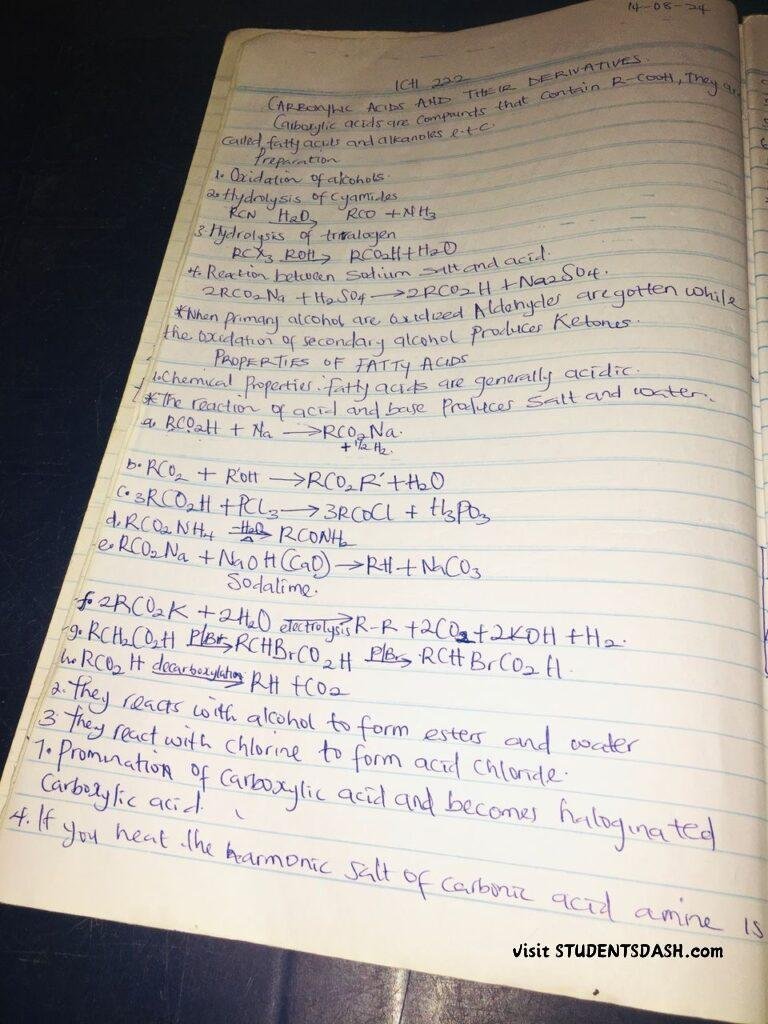 14-08-24
ICH 222
CARBOXYLIC ACIDS AND THEIR DERIVATIVES.
Carboxylic acids are compounds that contain R-COOH, They are
called fatty acids and alkanoles e.t.c.
Preparation
1. Oxidation of alcohols.
2. Hydrolysis of Cyamides
RCN H₂O→ RCO + NH₃
3. Hydrolysis of trihalogen
RCX₃ ROH→ RCO₂H + H₂O
4. Reaction between Sodium salt and acid.
2RCO₂Na + H₂SO₄ → 2RCO₂H + Na₂SO₄.
*When primary alcohol are oxidized Aldehydes are gotten while
the oxidation of secondary alcohol produces Ketones.
PROPERTIES OF FATTY ACIDS
1. Chemical Properties: fatty acids are generally acidic.
*The reaction of acid and base produces salt and water.
a. RCO₂H + Na → RCO₂Na.
+ ½ H₂.
b. RCO₂ + R'OH → RCO₂R' + H₂O
c. 3RCO₂H + PCl₃ → 3RCOCl + H₃PO₃
d. RCO₂NH₄ -H₂O→ Δ RCONH₂
e. RCO₂Na + NaOH (CaO) → RH + NaCO₃
Sodalime.
f. 2RCO₂K + 2H₂O electrolysis→ R-R + 2CO₂ + 2KOH + H₂.
g. RCH₂CO₂H P/Br→ RCHBrCO₂H P/Br→ RCHBrCO₂H.
h. RCO₂H decarboxylation→ RH + CO₂
2. They reacts with alcohol to form esters and water
3. They react with chlorine to form acid chloride.
7. Promination of carboxylic acid and becomes haloginated
Carboxylic acid.
4. If you heat the harmonic salt of carbonic acid amine is
visit STUDENTSDASH.com